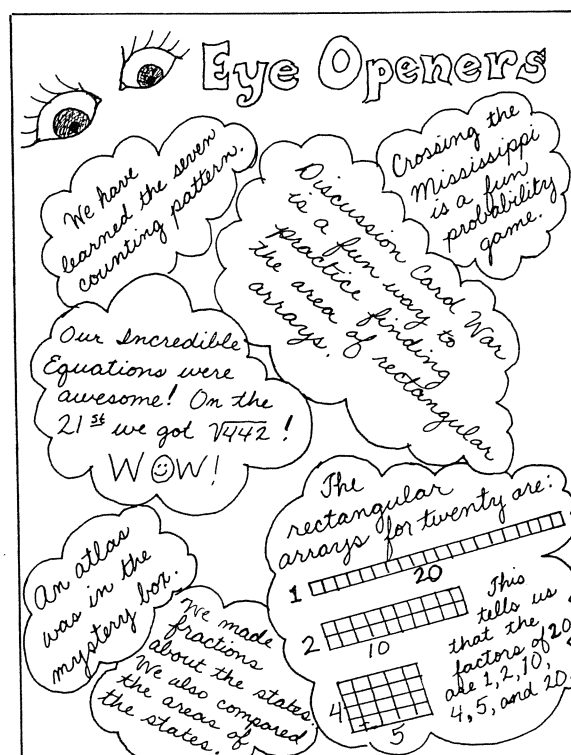 Eye Openers
We have
learned the seven
counting pattern.
Discussion Card War
is a fun way to
practice finding
the area of rectangular
arrays.
Crossing the
Mississippi
is a fun
probability
game.
Our Incredible
Equations were
awesome! On the
21st we got √442!
WOW!
The
rectangular
arrays for twenty are:
1
20
2
10
4
5
This
tells us
that the
factors of 20
are 1, 2, 10,
4, 5, and 20.
An atlas
was in the
mystery box.
We made
fractions
about the states.
We also compared
the areas of
the states.